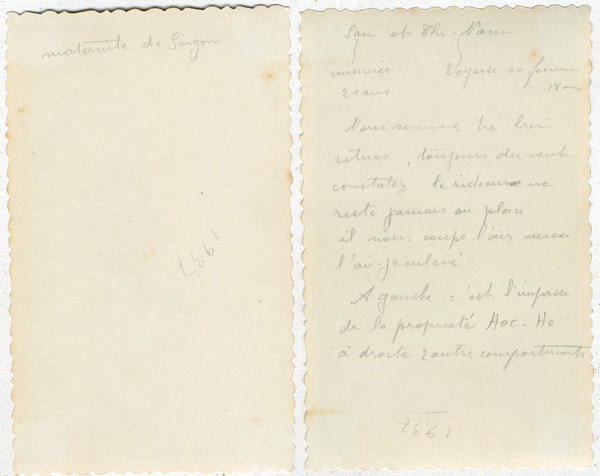 maternité de Saigon
1937
Sau et Thi-Nam
cuisinier
sa femme
21 ans
18 ans
Nous sommes très bien
situés, toujours du vent
constatez le rideau ne
reste jamais en place
il nous coupe l'air aussi
l'ai-je enlevé
A gauche c'est l'impasse
de la propriété Hoc-Ho
à droite 2 autres compartiments
1937